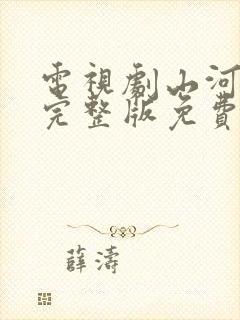 電視劇山河
完整版免費
薛濤